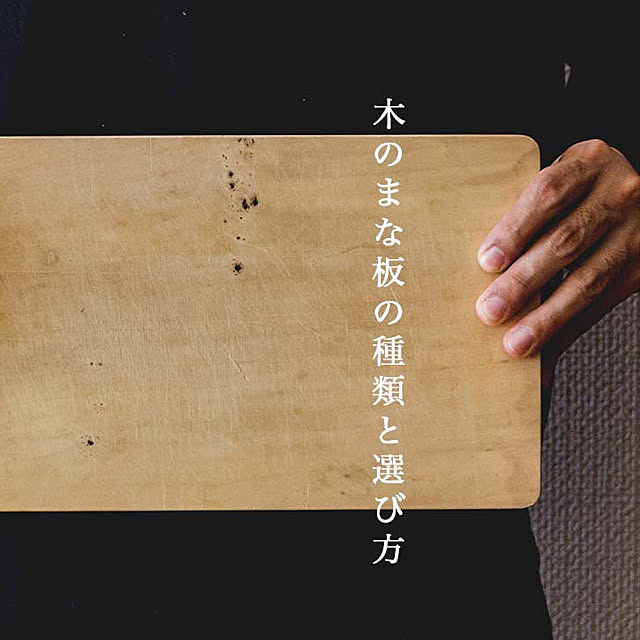 木のまな板の種類と選び方